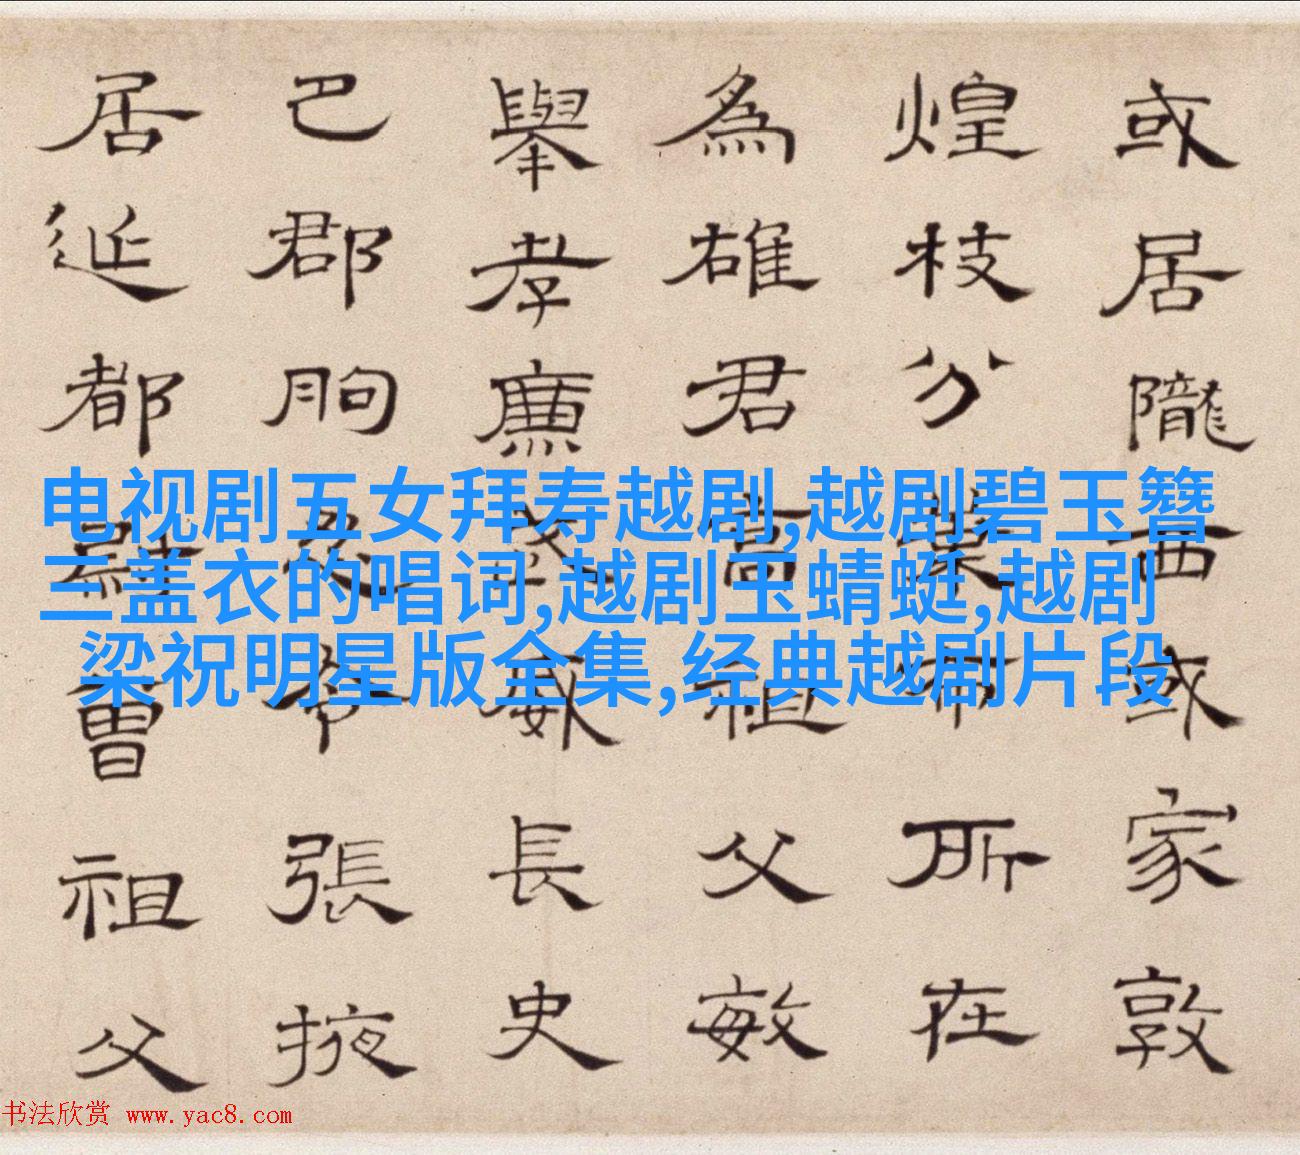 或居隴西或家敦
煌枝分葉布所在
為雄君高祖父敏
舉孝廉武威長史
巴郡朐忍令張掖
居延都尉曾祖父
电视剧五女拜寿越剧,越剧碧玉簪
三盖衣的唱词,越剧玉蜻蜓,越剧
梁祝明星版全集,经典越剧片段
书法欣赏 www.yac8.com